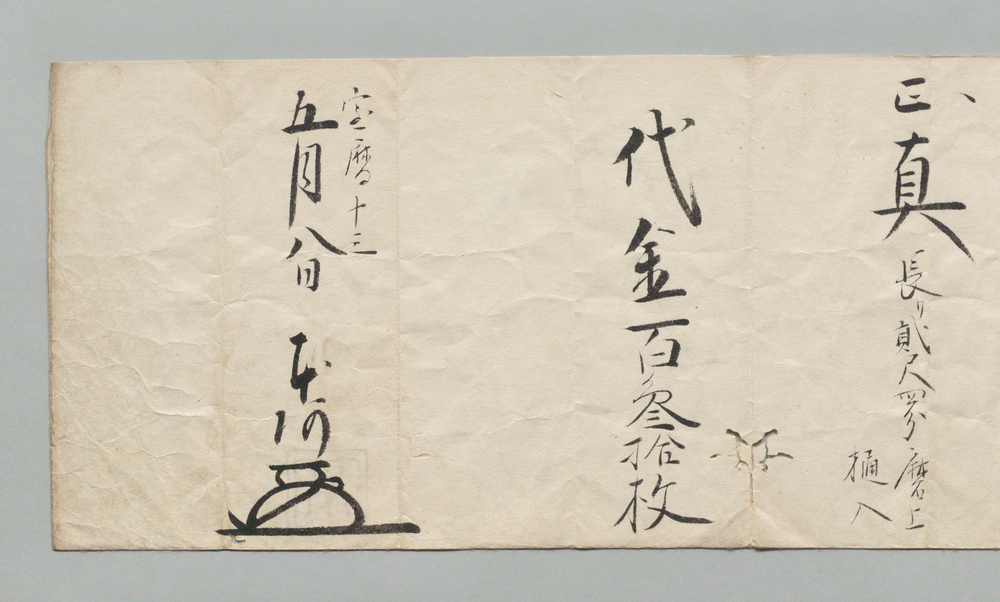 正真
長サ貳尺四分磨上
樋入
代金百叁拾枚
宝暦十三
五月八日
本阿